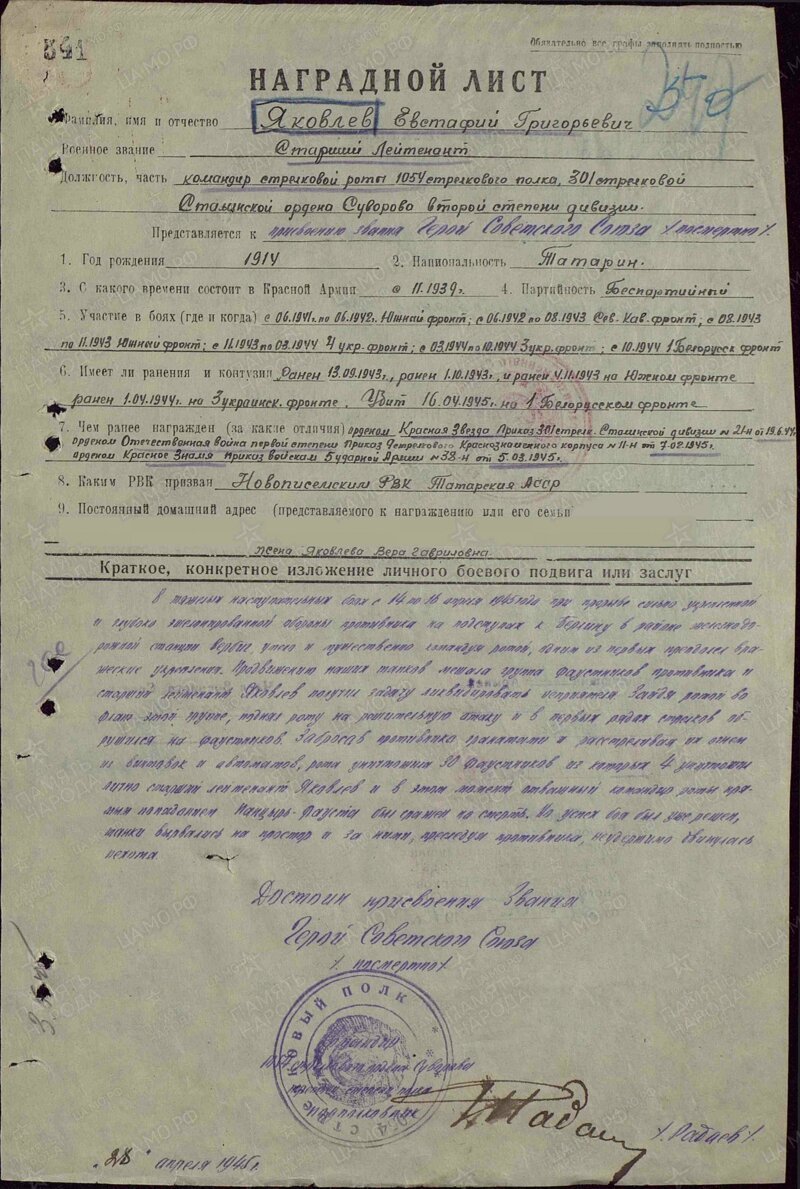 841
Обязательно все графы заполнять полностью
НАГРАДНОЙ ЛИСТ
Фамилия, имя и отчество Яковлев Евстафий Григорьевич
Военное звание Старший Лейтенант
Должность, часть командир стрелковой роты 1054 стрелкового полка, 301 стрелковой
Сталинской ордена Суворова второй степени дивизии.
Представляется к присвоению звания Герой Советского Союза /посмертно/.
1. Год рождения 1914 2. Национальность Татарин.
3. С какого времени состоит в Красной Армии с 11.1939г. 4. Партийность Беспартийный
5. Участие в боях (где и когда) с 06.1941г. по 06.1942г. Южный фронт; с 06.1942 по 08.1943 Сев. Кав. фронт; с 08.1943
по 11.1943 Южный фронт; с 11.1943 по 03.1944 4 укр. фронт; с 03.1944 по 10.1944 3 укр. фронт; с 10.1944 1 Белорусск фронт
6. Имеет ли ранения и контузия Ранен 13.09.1943г., ранен 1.10.1943г., и ранен 4.11.1943 на Южном фронте
ранен 1.04.1944г. на 3 украинск. фронте. Убит 16.04.1945г. на 1 Белорусском фронте
7. Чем ранее награжден (за какие отличия) орденом Красная Звезда Приказ 301 стрелк. Сталинской дивизии № 21-н от 19.6.44г.
орденом Отечественная война первой степени Приказ 9 стрелкового Краснознаменного корпуса № 11-н от 7.02.1945г.
орденом Красное Знамя Приказ войскам 5 ударной Армии № 38-н от 5.03.1945г.
8. Каким РВК призван Новописемским РВК Татарская АССР
9. Постоянный домашний адрес (представляемого к награждению или его семьи
жена Яковлева Вера Гавриловна.
Краткое, конкретное изложение личного боевого подвига или заслуг
В тяжелых наступательных боях с 14 по 16 апреля 1945 года при прорыве сильно укрепленной
и глубоко эшелонированной обороны противника на подступах к Берлину в районе железнодо-
рожной станции Вербиг, умело и мужественно командуя ротой, одним из первых преодолел вра-
жеские укрепления. Продвижению наших танков мешала группа фаустников противника и
старший лейтенант Яковлев получил задачу ликвидировать неприятеля. Зайдя ротой во
фланг этой группе, поднял роту на решительную атаку и в первых рядах стрелков об-
рушился на фаустников. Забросав противника гранатами и расстреливая их огнем
из винтовок и автоматов, рота уничтожила 30 фаустников из которых 4 уничтожил
лично старший лейтенант Яковлев и в этот момент отважный командир роты пря-
мым попаданием Панцырь-Фауста был сражен на смерть. Но успех боя был уже решен,
танки вырвались на простор и за ними, преследуя противника, неудержимо двинулась
пехота.
Достоин присвоения Звания
Герой Советского Союза
/посмертно/.
СТРЕЛКОВЫЙ ПОЛК
Командир
1054 стрелкового ордена Суворова
третьей степени полка
подполковник
/Радаев/.
"28" апреля 1945г.